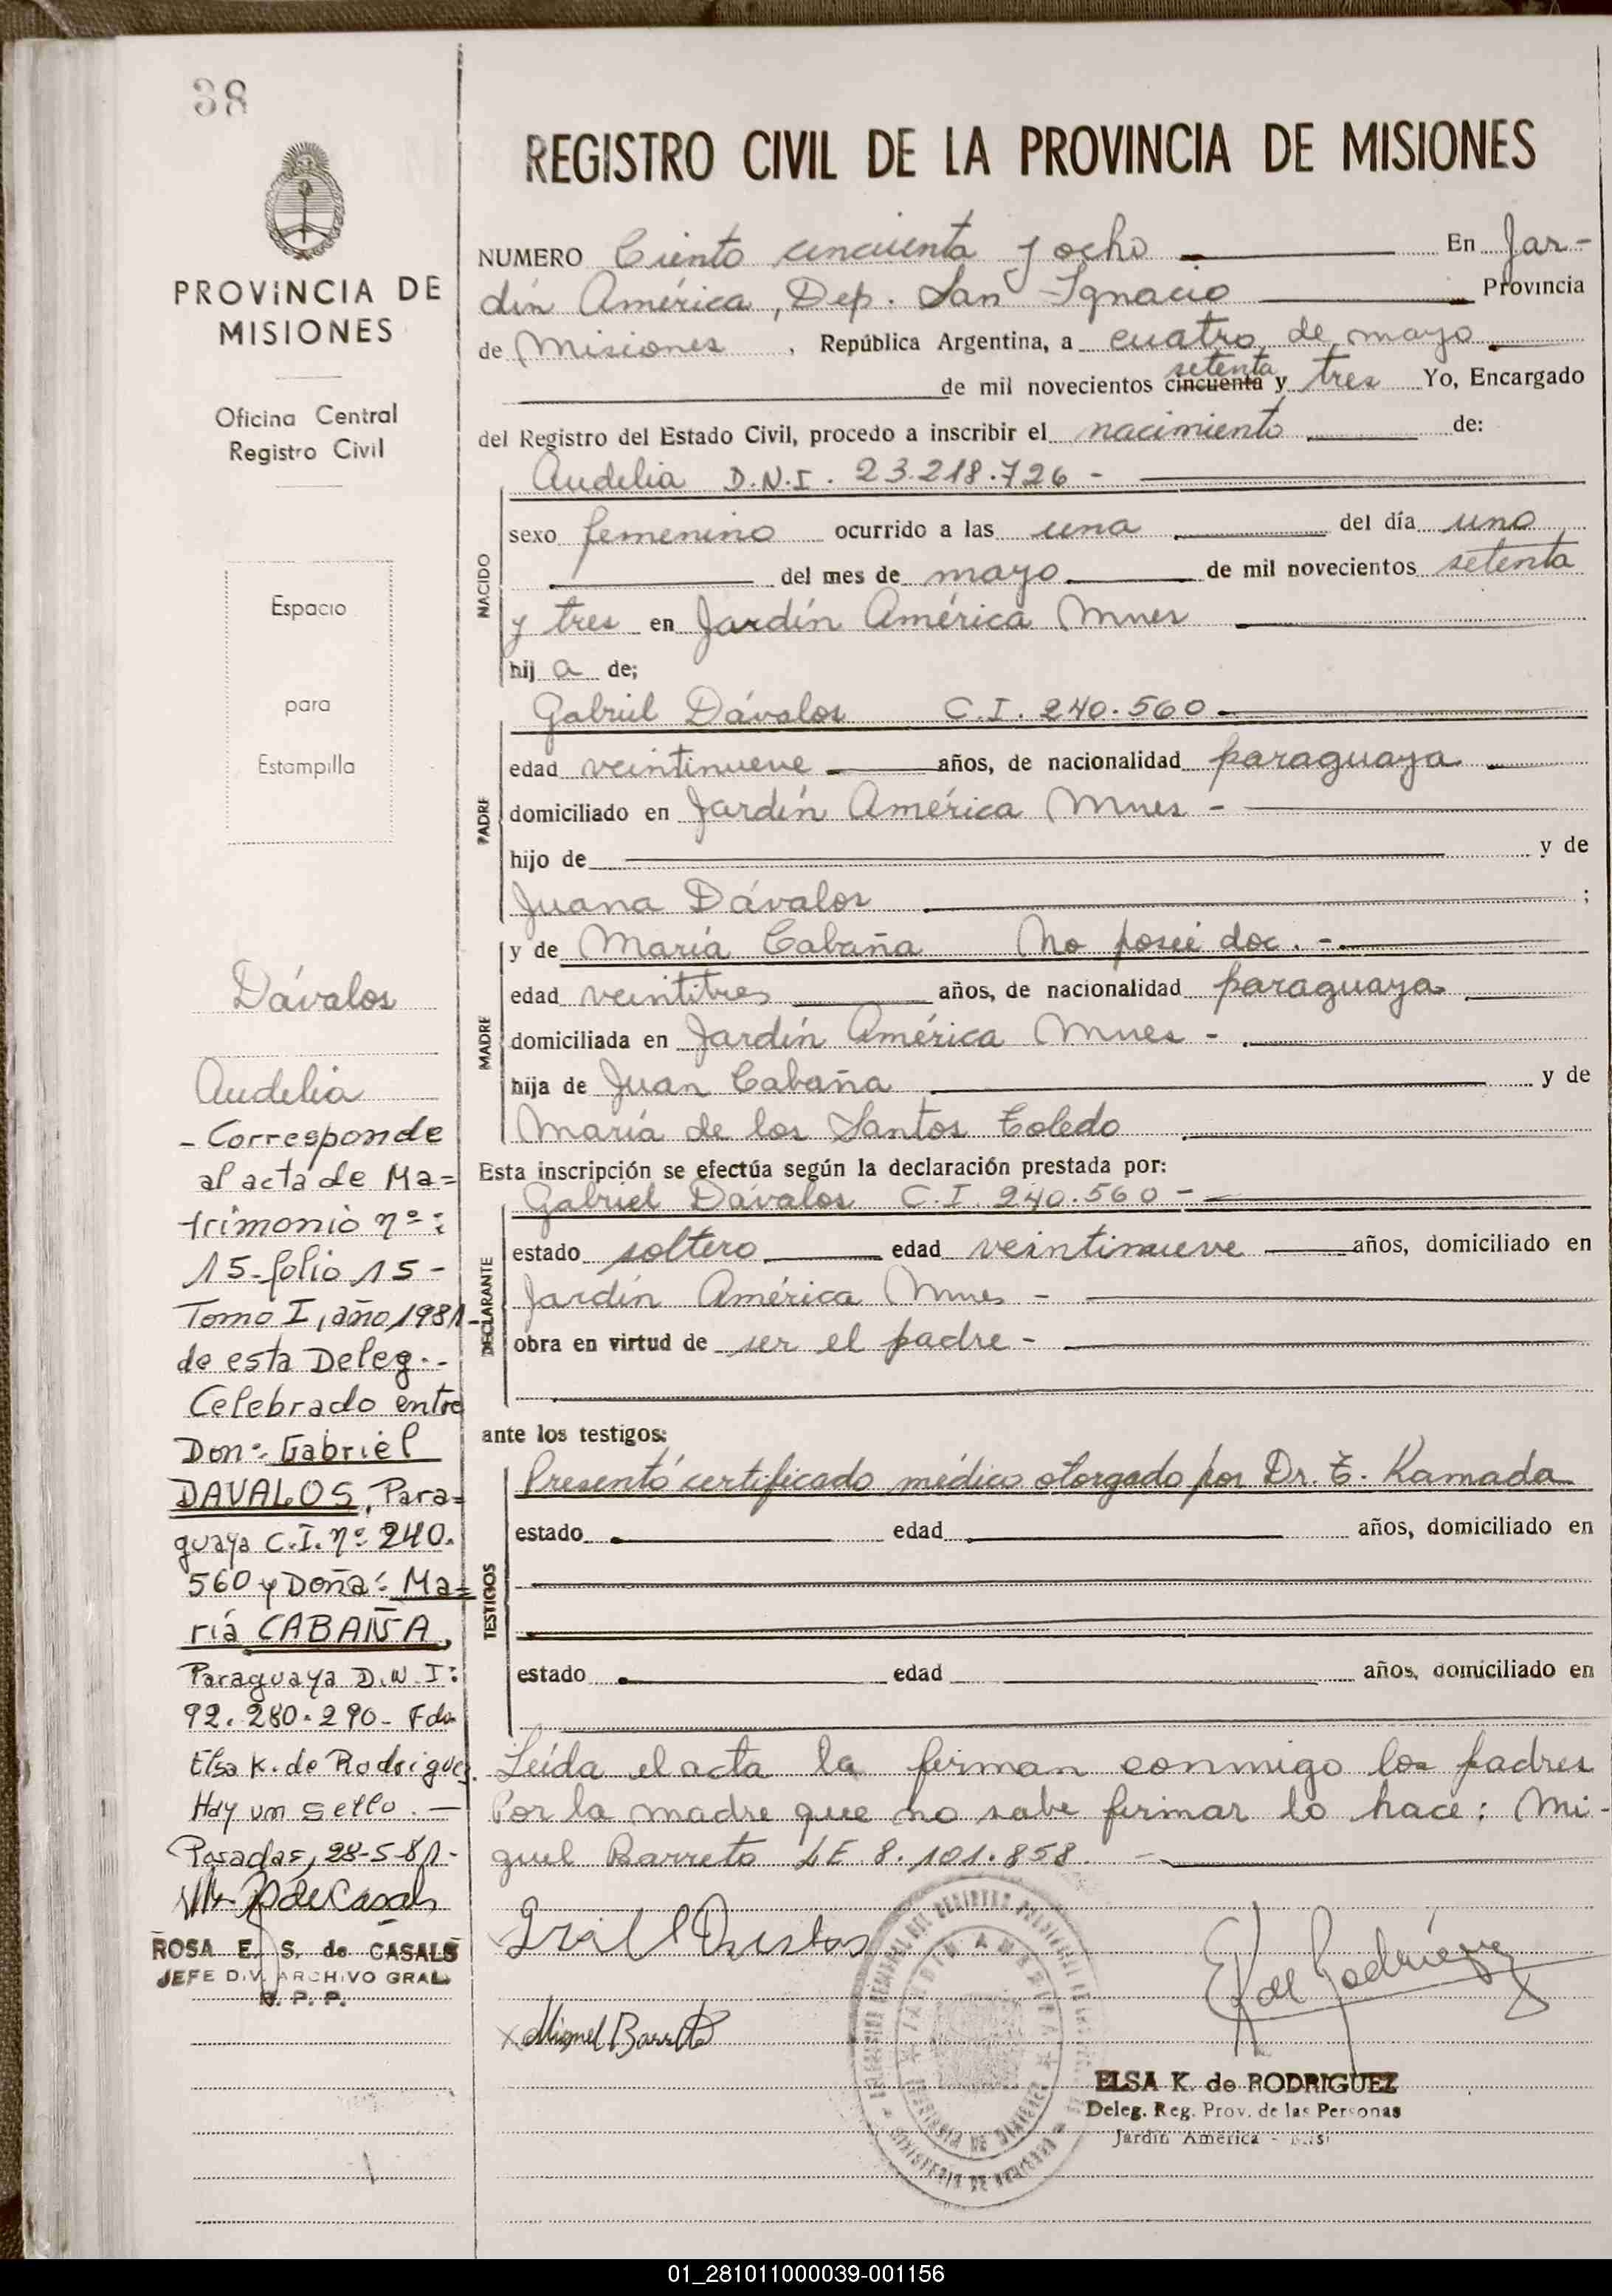 38
PROVINCIA DE
MISIONES
Oficina Central
Registro Civil
Espacio
para
Estampilla
Dávalos
Audelia
- Corresponde
al acta de Ma=
trimonio nº:
15-folio 15-
Tomo I, año 1981-
de esta Deleg.-
Celebrado entre
Don: Gabriel
DAVALOS, Para=
guaya C.I. nº 240.
560 y Doña: Ma=
ría CABAÑA,
Paraguaya D.N.I:
92.280.290- Fdo
Elsa K. de Rodriguez.
Hay un sello. —
Posadas, 28-5-81-
ROSA E. S. de CASALS
JEFE DIV. ARCHIVO GRAL
R. P. P.
REGISTRO CIVIL DE LA PROVINCIA DE MISIONES
NUMERO Ciento cincuenta y ocho En Jar-
dín América, Dep. San Ignacio Provincia
de Misiones, República Argentina, a cuatro de mayo
setenta
de mil novecientos cincuenta y tres Yo, Encargado
del Registro del Estado Civil, procedo a inscribir el nacimiento de:
Audelia D.N.I. 23.218.726 -
NACIDO
sexo femenino ocurrido a las una del día uno
del mes de mayo de mil novecientos setenta
y tres en Jardín América Mnes
hij a de;
Gabriel Dávalos C.I. 240.560
PADRE
edad veintinueve años, de nacionalidad paraguaya
domiciliado en Jardín América Mnes -
hijo de y de
Juana Dávalos ;
y de María Cabaña No posee doc. -
MADRE
edad veintitres años, de nacionalidad paraguaya
domiciliada en Jardín América Mnes -
hija de Juan Cabaña y de
María de los Santos Toledo
Esta inscripción se efectúa según la declaración prestada por:
Gabriel Dávalos C.I. 240.560 -
DECLARANTE
estado soltero edad veintinueve años, domiciliado en
Jardín América Mnes -
obra en virtud de ser el padre -
ante los testigos:
Presentó certificado médico otorgado por Dr. T. Kamada
TESTIGOS
estado edad años, domiciliado en
estado edad años, domiciliado en
Leída el acta la firman conmigo los padres
Por la madre que no sabe firmar lo hace: Mi-
guel Barreto LE 8.101.858. -
x Miguel Barreto
E K de Rodríguez
JARDIN AMERICA
ELSA K. de RODRIGUEZ
Deleg. Reg. Prov. de las Personas
Jardín América - Mis
01_281011000039-001156